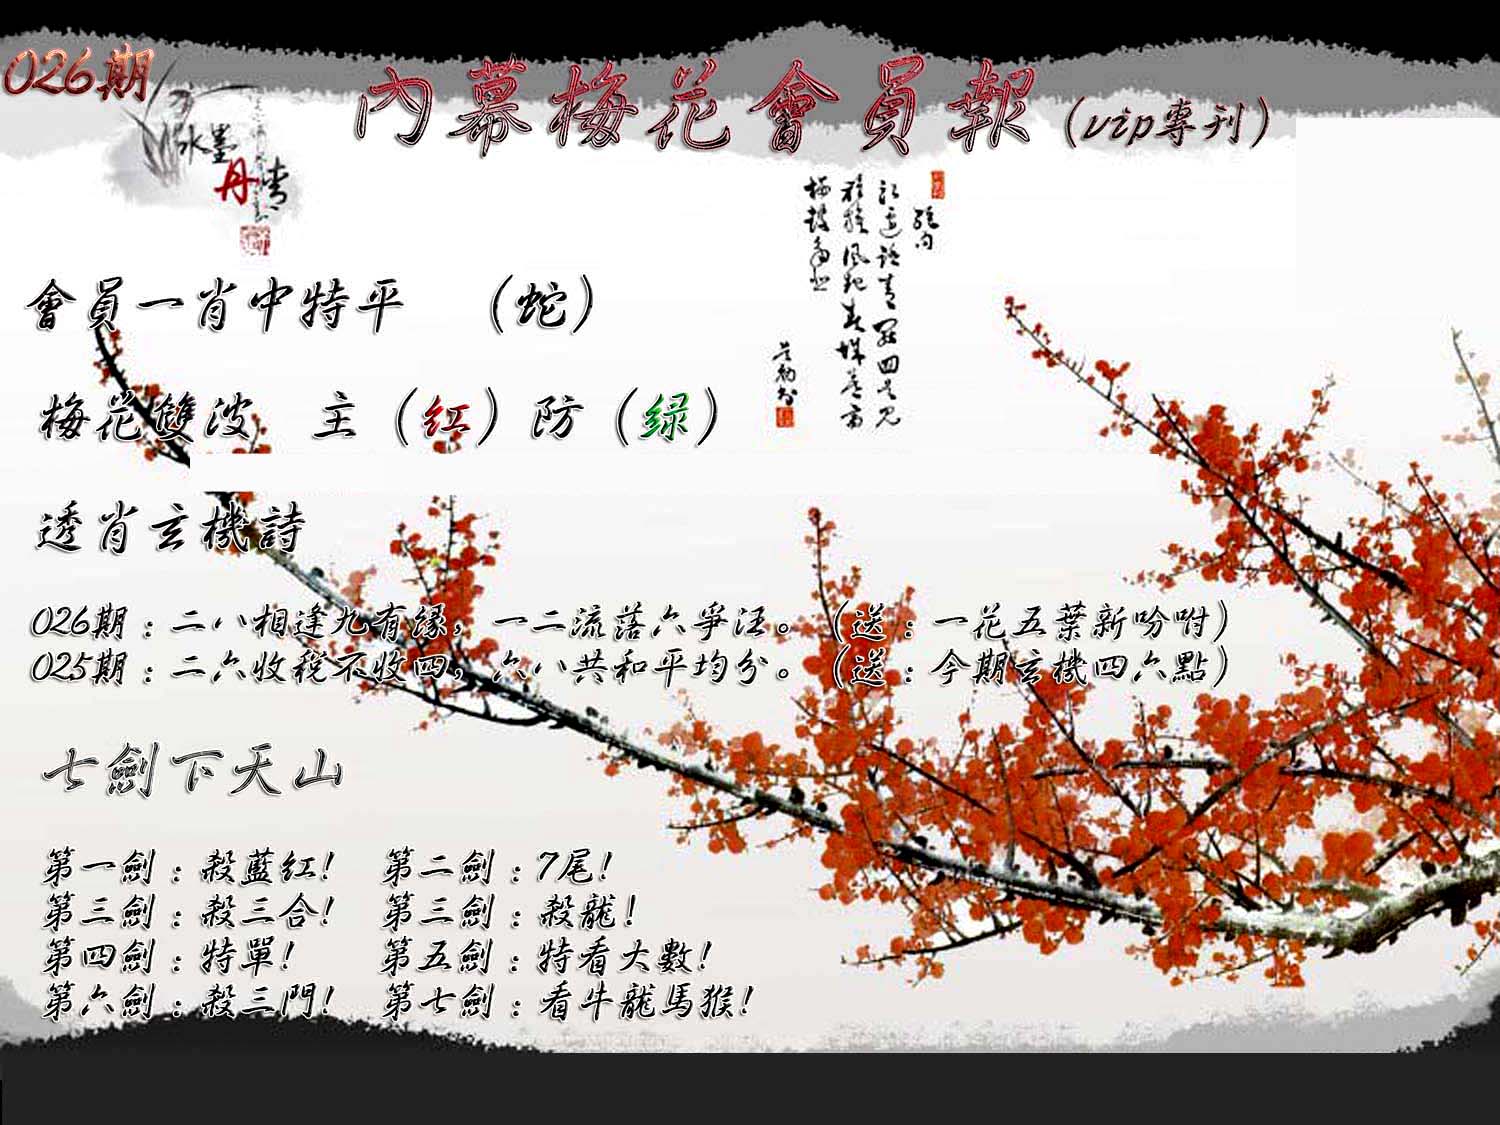 026期
內幕梅花會員報（vip專刊）
水墨
丹青
會員一肖中特平　（蛇）
梅花雙波　主（红）防（绿）
透肖玄機詩
026期：二八相逢九有缘，一二流落六爭汪。（送：一花五葉新吩咐）
025期：二六收税不收四，六八共和平均分。（送：今期玄機四六點）
七劍下天山
第一劍：殺藍红！　第二劍：7尾！
第三劍：殺三合！　第三劍：殺龍！
第四劍：特單！　第五劍：特看大數！
第六劍：殺三門！　第七劍：看牛龍馬猴！